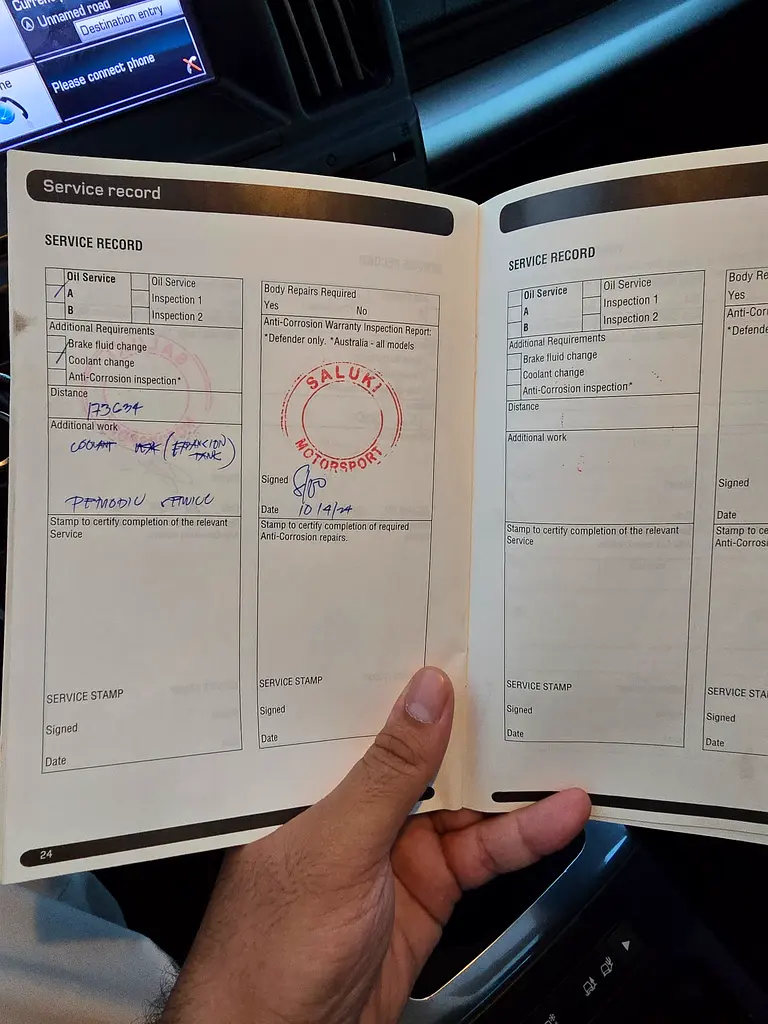 Current
Unnamed road
Destination entry
Please connect phone
Service record
SERVICE RECORD
Oil Service
A
B
Oil Service
Inspection 1
Inspection 2
Additional Requirements
Brake fluid change
Coolant change
Anti-Corrosion inspection*
Distance
173634
Additional work
COOLANT (EXPANCION
TANK)
PERIODIC SERVICE
Stamp to certify completion of the relevant
Service
SERVICE STAMP
Signed
Date
Body Repairs Required
Yes No
Anti-Corrosion Warranty Inspection Report:
*Defender only. *Australia - all models
SALUKI
MOTORSPORT
Signed
Date 10/4/24
Stamp to certify completion of required
Anti-Corrosion repairs.
SERVICE STAMP
Signed
Date
24
SERVICE RECORD
Oil Service
A
B
Oil Service
Inspection 1
Inspection 2
Additional Requirements
Brake fluid change
Coolant change
Anti-Corrosion inspection*
Distance
Additional work
Stamp to certify completion of the relevant
Service
SERVICE STAMP
Signed
Date
Body Re
Yes
Anti-Corro
*Defende
Signed
Date
Stamp to ce
Anti-Corrosi
SERVICE STA
Signed
Date